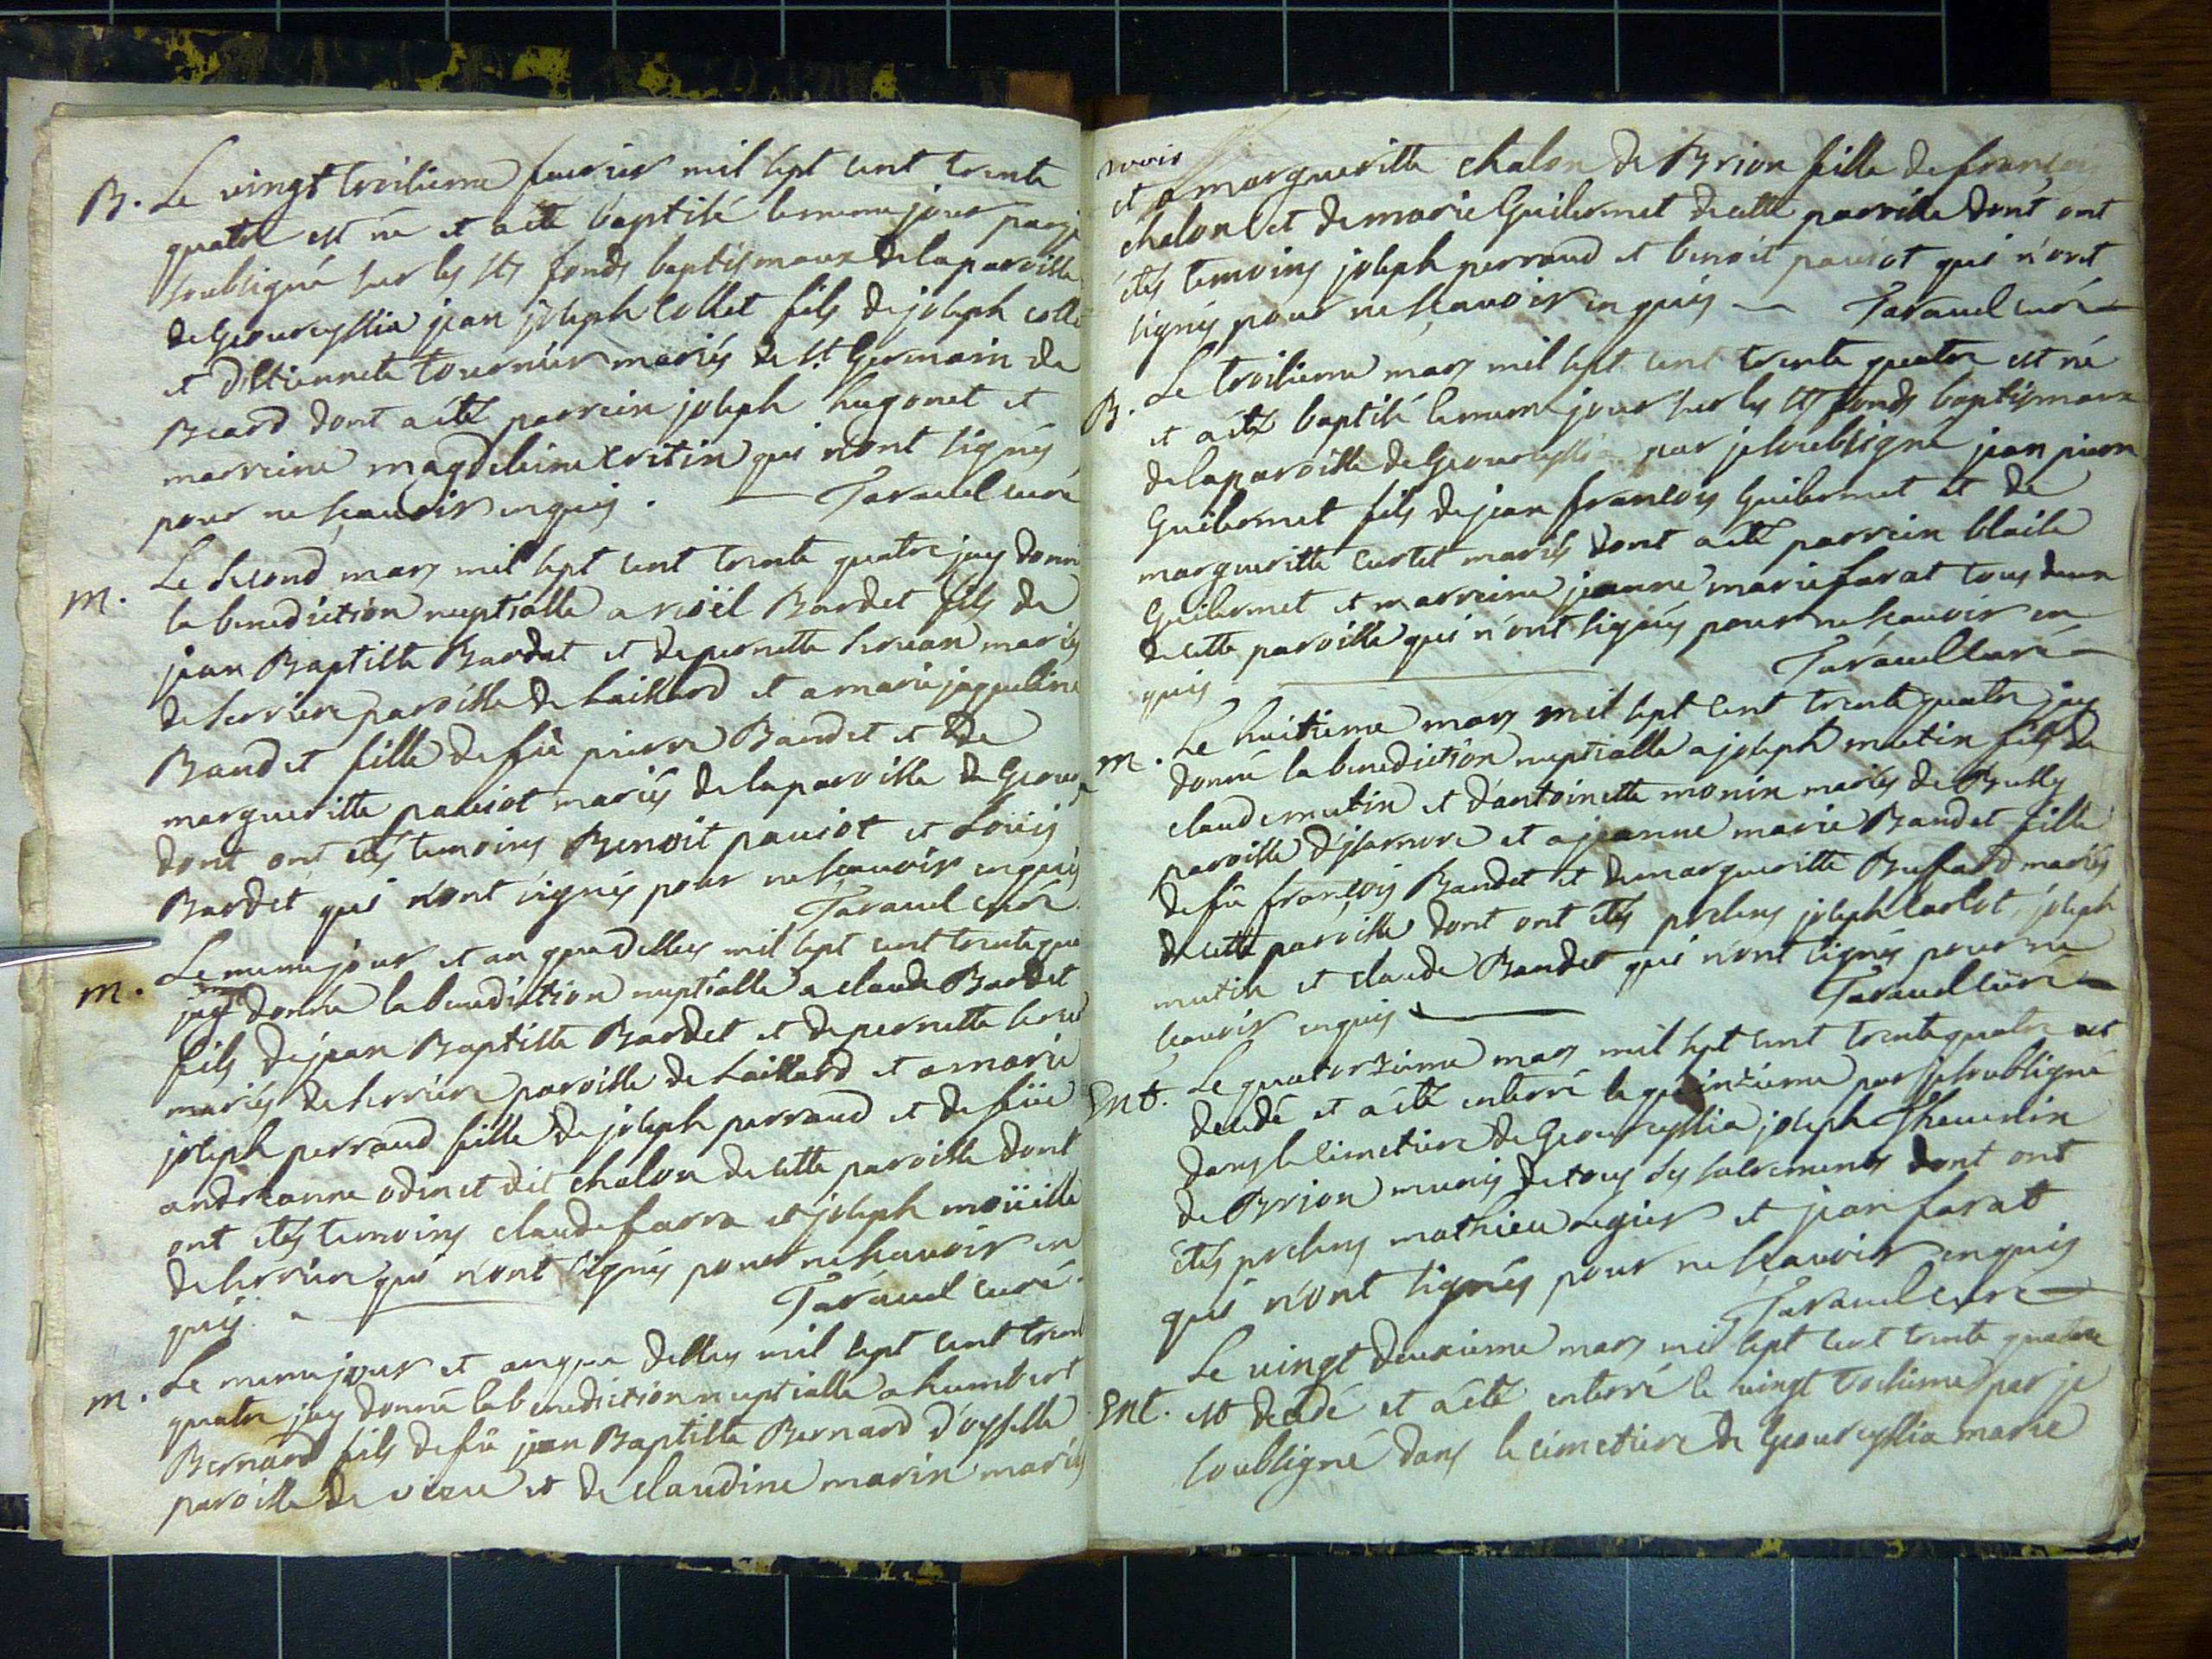 B. Le vingt troisieme feuvrier mil sept cent trente
quatre est né et a été baptisé le meme jour par je
soubsigné sur les sts fonds baptismaux de la paroisse
de Geoureyssia jean joseph Collet fils de joseph coll
et d'Estiennete tournier mariés de st. Germain de
Beard dont a été parrein joseph hugonet et
marreine magdeleine Critin qui n'ont signés
pour ne sçauoir enquis. Tarauel curé
m. Le second mars mil sept cent trente quatre jay donné
la benediction nuptialle a noël Bardet fils de
jean Baptiste Bardet et de pernette mariés
de serriere paroisse de et a marie jaqueline
Baudet fille de fû pierre Baudet et de
margueritte pauiot mariés de la paroisse de Geour
dont ont étés temoins Benoit pauiot et Loüis
Bardet qui n'ont signés pour ne sçauoir enquis
Tarauel curé
m. Le meme jour et an que dessus mil sept cent trente qua
jay donné la benediction nuptialle a claude Bardet
fils de jean Baptiste Bardet et de pernette
mariés de serriere paroisse de et a marie
joseph perraud fille de joseph perraud et de fûe
andréanne odinet dit chalon de cette paroisse dont
ont étés temoins claude farra et joseph moüille
de serriere qui n'ont signés pour ne sçauoir en
quis. Tarauel curé
m. Le meme jour et an que dessus mil sept cent trent
quatre jay donné la benediction nuptialle a humbert
Bernard fils de fû jean Baptiste Bernard d'oysselle
paroisse de vieu et de claudine marin mariés
et a margueritte chalon de Brion fille de françois
chalon et de marie Guilermet de cette paroisse dont ont
étés temoins joseph perraud et benoit pauiot qui n'ont
signés pour ne sçauoir enquis Tarauel curé
B. Le troisieme mars mil sept cent trente quatre est né
et a été baptisé le meme jour sur les sts fonds baptismaux
de la paroisse de Geoureyssia par je soubsigné jean pierre
Guilermet fils de jean françois Guilermet et de
margueritte curtet mariés dont a été parrein blaise
Guilermet et marreine jeanne marie farat tous deux
de cette paroisse qui n'ont signés pour ne sçauoir en
quis Tarauel curé
m. Le huitieme mars mil sept cent trente quatre jay
donné la benediction nuptialle a joseph mutin fils de
claude mutin et d'antoinette monin mariés de Bussy
paroisse d'ysarnore et a jeanne marie Baudet fille
de fû françois Baudet et de margueritte Bufard mariés
de cette paroisse dont ont étés presens joseph carlot, joseph
mutin et claude Baudet qui n'ont signés pour ne
sçauoir enquis Tarauel curé
Ent. Le quatorzieme mars mil sept cent trente quatre est
decedé et a été enterré le quinzieme par je soubsigné
dans le cimetiere de Geoureyssia joseph Theuenin
de Brion munis de tous les sacrements dont ont
étés presens mathieu Legier et jean farat
qui n'ont signés pour ne sçauoir enquis
Tarauel curé
Le vingt deuxieme mars mil sept cent trente quatre
Ent. est decedé et a été enterré le vingt troisieme par je
soubsigné dans le cimetiere de Geoureyssia marie